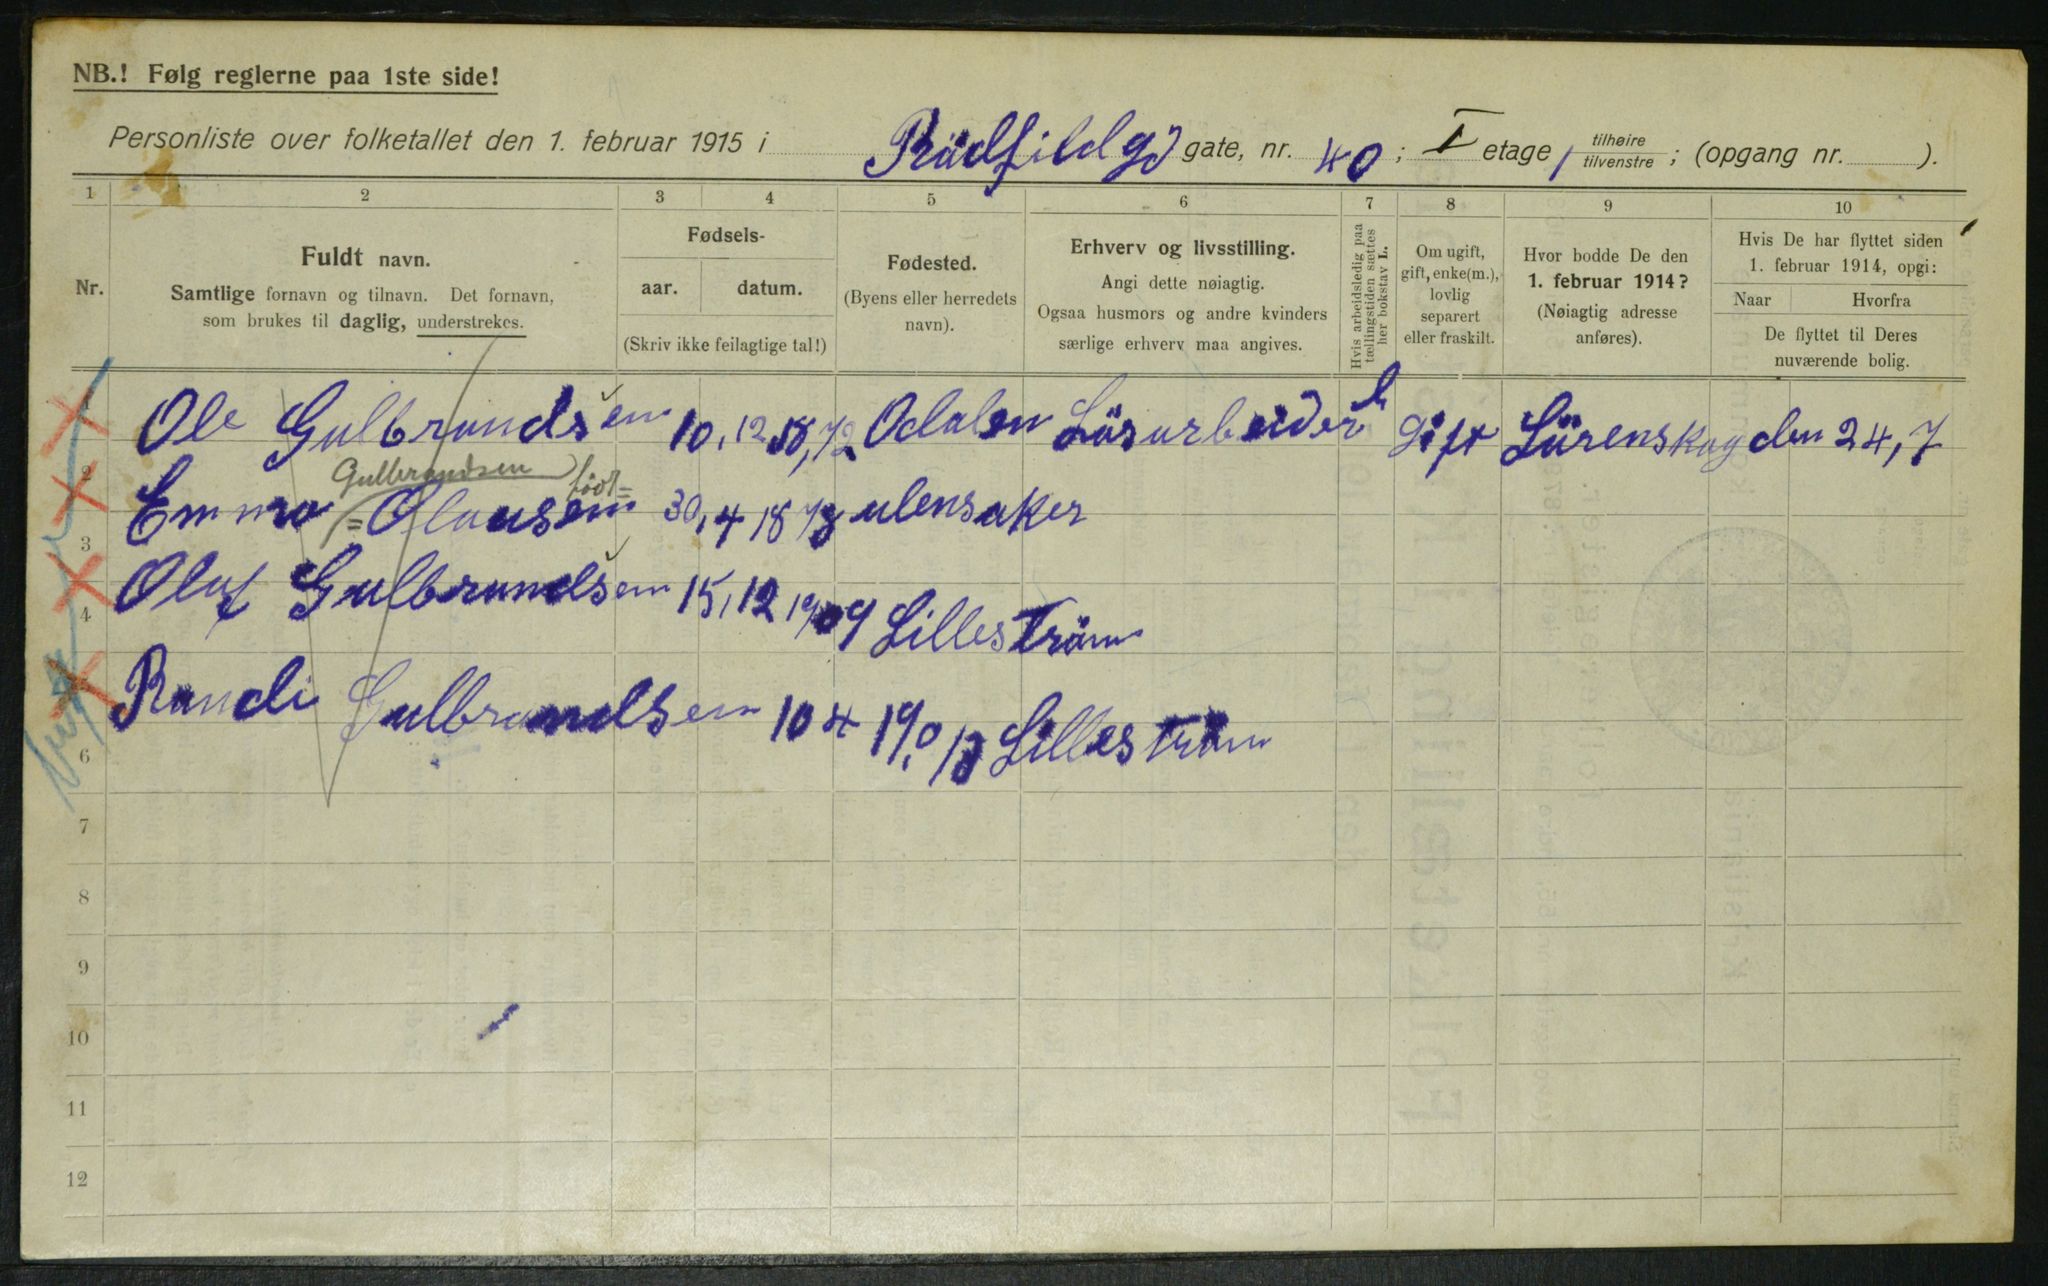 NB.! Følg reglerne paa 1ste side!
Personliste over folketallet den 1. februar 1915 i Rödfildgd gate, nr. 40; I etage / tilhøire tilvenstre; (opgang nr. ).
1 2 3 4 5 6 7 8 9 10
Nr.
Fuldt navn.
Samtlige fornavn og tilnavn. Det fornavn,
som brukes til daglig, understrekes.
Fødsels-
aar. datum.
(Skriv ikke feilagtige tal!)
Fødested.
(Byens eller herredets
navn).
Erhverv og livsstilling.
Angi dette nøiagtig.
Ogsaa husmors og andre kvinders
særlige erhverv maa angives.
Hvis arbeidsledig paa
tællingstiden sættes
her bokstav L.
Om ugift,
gift, enke(m.),
lovlig
separert
eller fraskilt.
Hvor bodde De den
1. februar 1914?
(Nøiagtig adresse
anføres).
Hvis De har flyttet siden
1. februar 1914, opgi:
Naar Hvorfra
De flyttet til Deres
nuværende bolig.
1 Ole Gulbrandsen 10,12 18,72 Odalen Lösarbeider L gift Lörenskog den 24,7
Gulbrandsen født=
2 Emma =Olausen 30,4 18 78 ulensaker
3 Olaf Gulbrandsen 15,12 1909 Lilleström
4 Randi Gulbrandsen 10 4 19,13 Lilleström
5
6
7
8
9
10
11
12